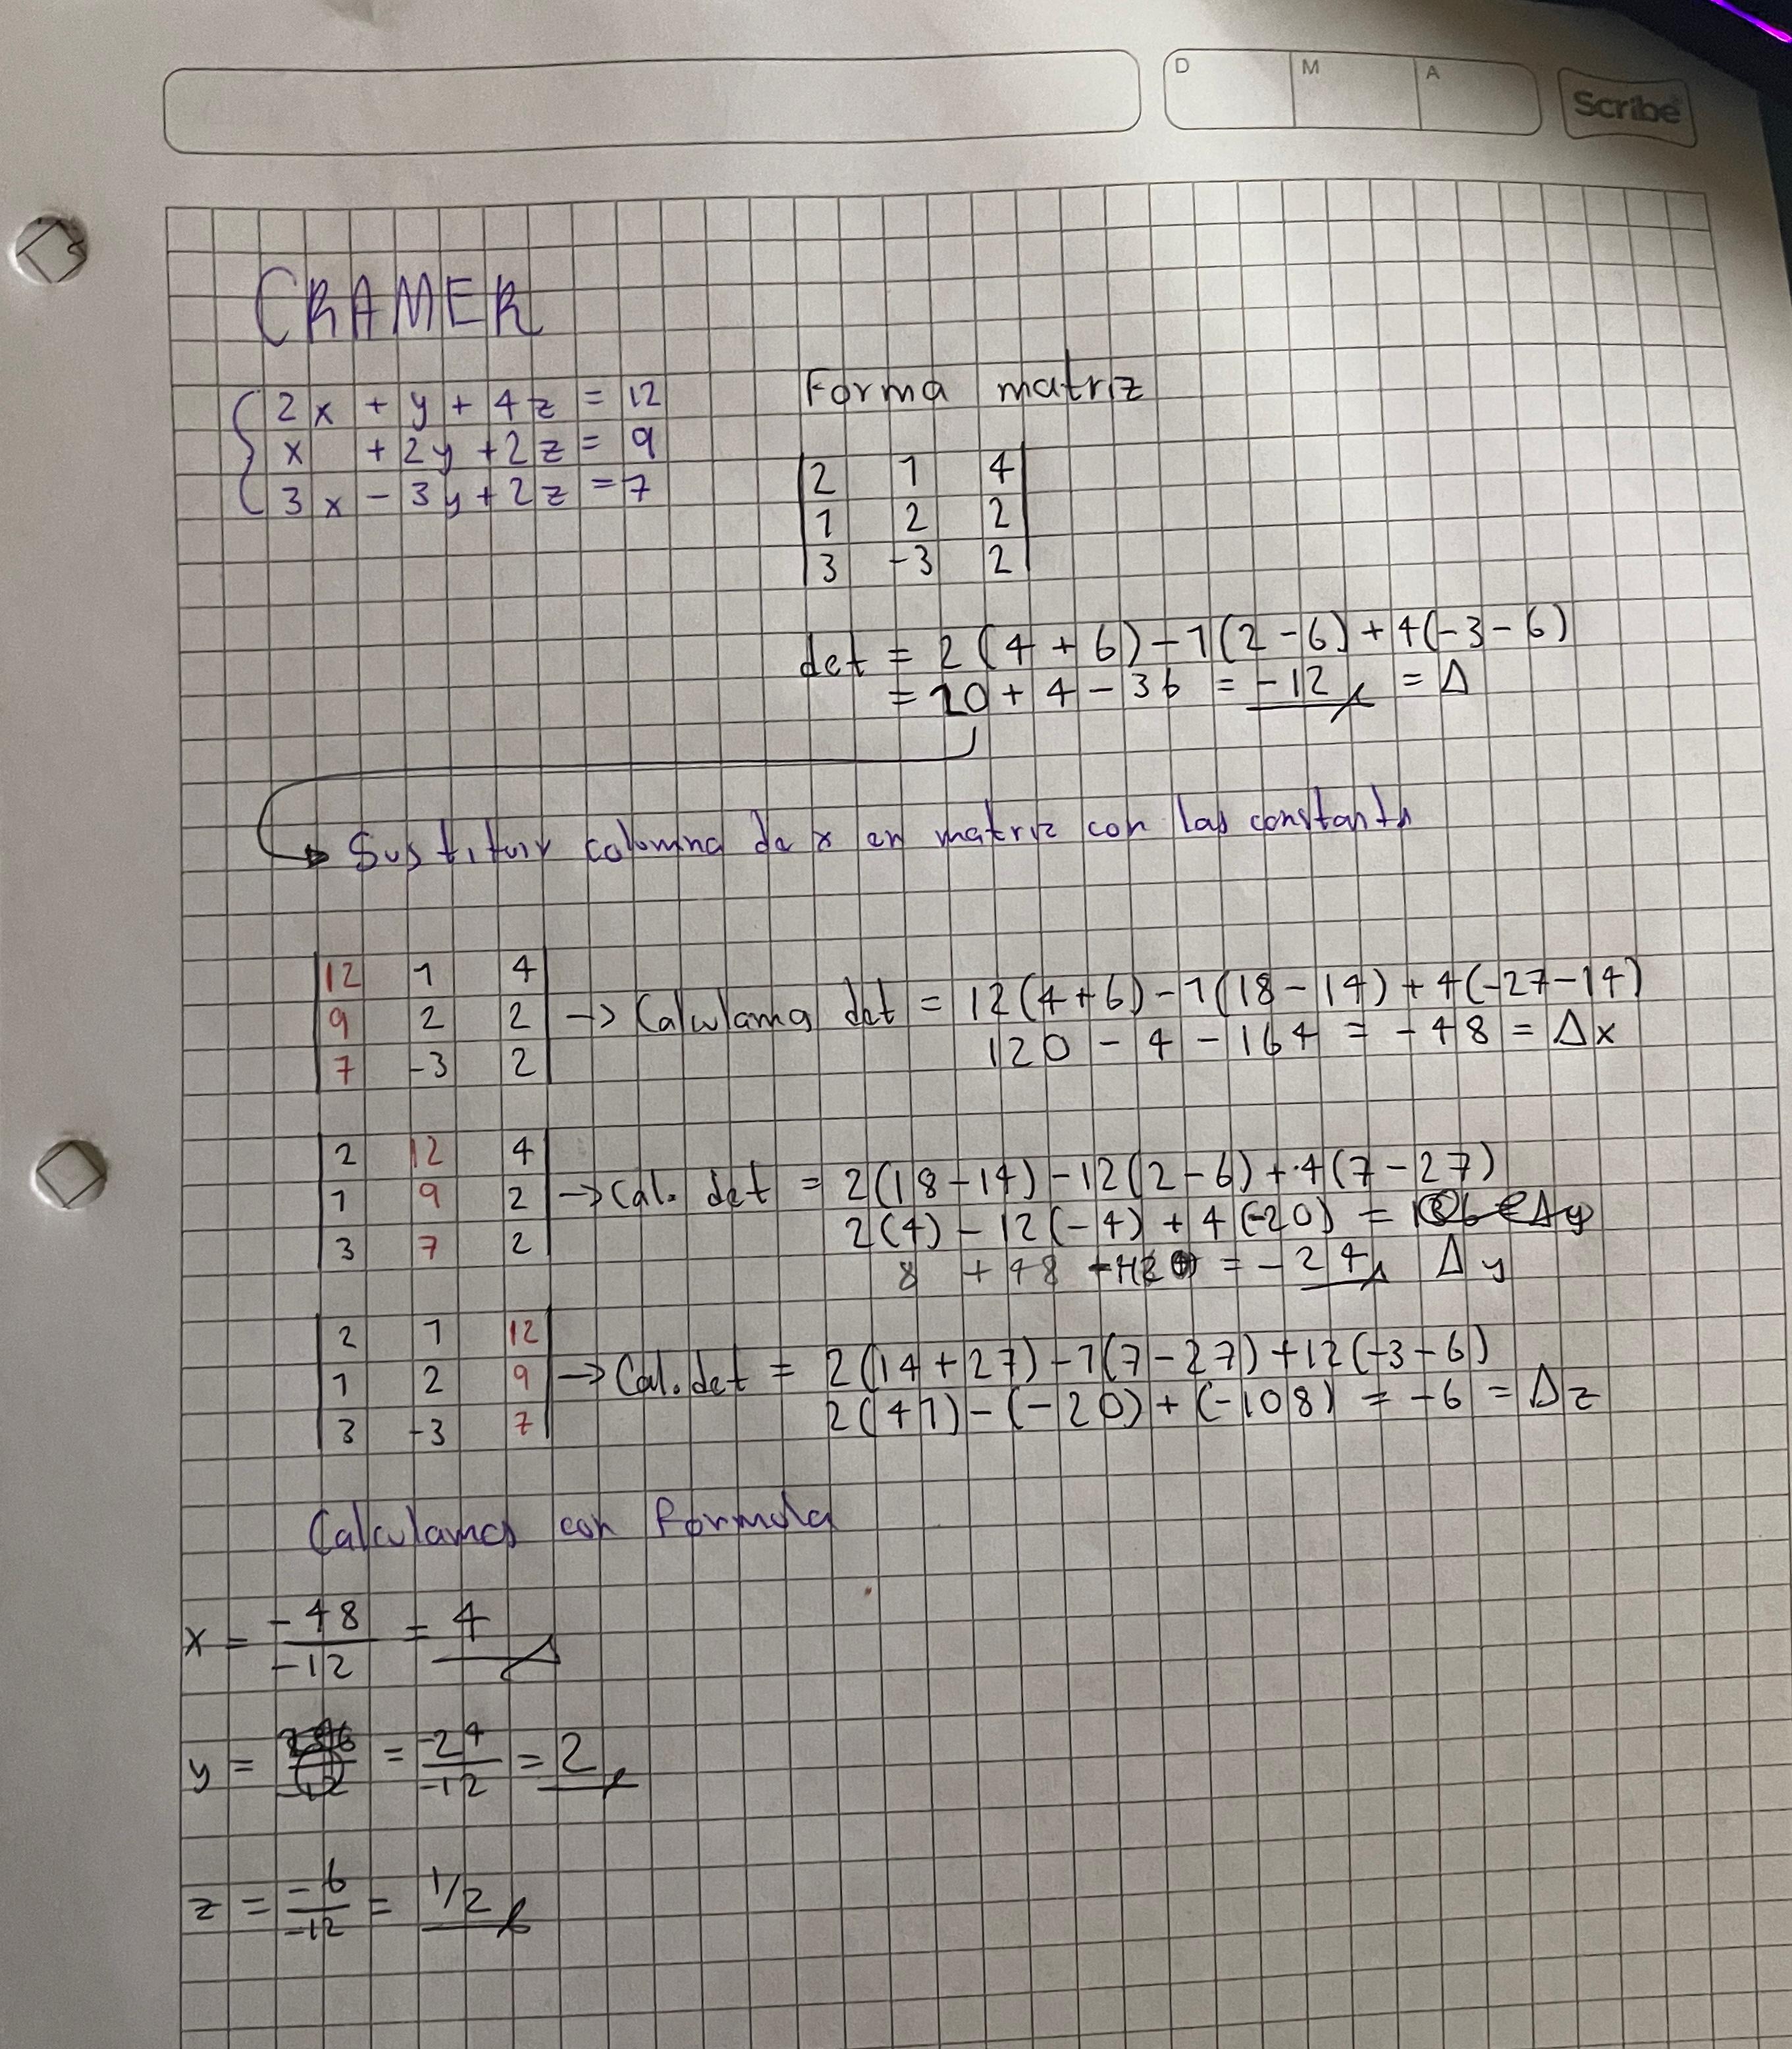 D M A Scribe
CRAMER
2x + y + 4z = 12
x + 2y + 2z = 9
3x - 3y + 2z = 7
Forma matriz
2 1 4
1 2 2
3 -3 2
det = 2(4+6)-1(2-6)+4(-3-6)
= 20+4-36 = -12 = Δ
Sustituir columna de x en matriz con las
12 1 4
9 2 2
7 -3 2
→ Calculamos det = 12(4+6)-1(18-14)+4(-27-14)
120-4-164 = -48 = Δx
2 12 4
1 9 2
3 7 2
→ Cal. det = 2(18-14)-12(2-6)+4(7-27)
2(4)-12(-4)+4(-20) =
8 +48 = -24 Δy
2 1 12
1 2 9
3 -3 7
→ Cal. det = 2(14+27)-1(7-27)+12(-3-6)
2(41)-(-20)+(-108) = -6 = Δz
Calculamos con formula
x = -48/-12 = 4
y = = -24/-12 = 2
z = -6/-12 = 1/2